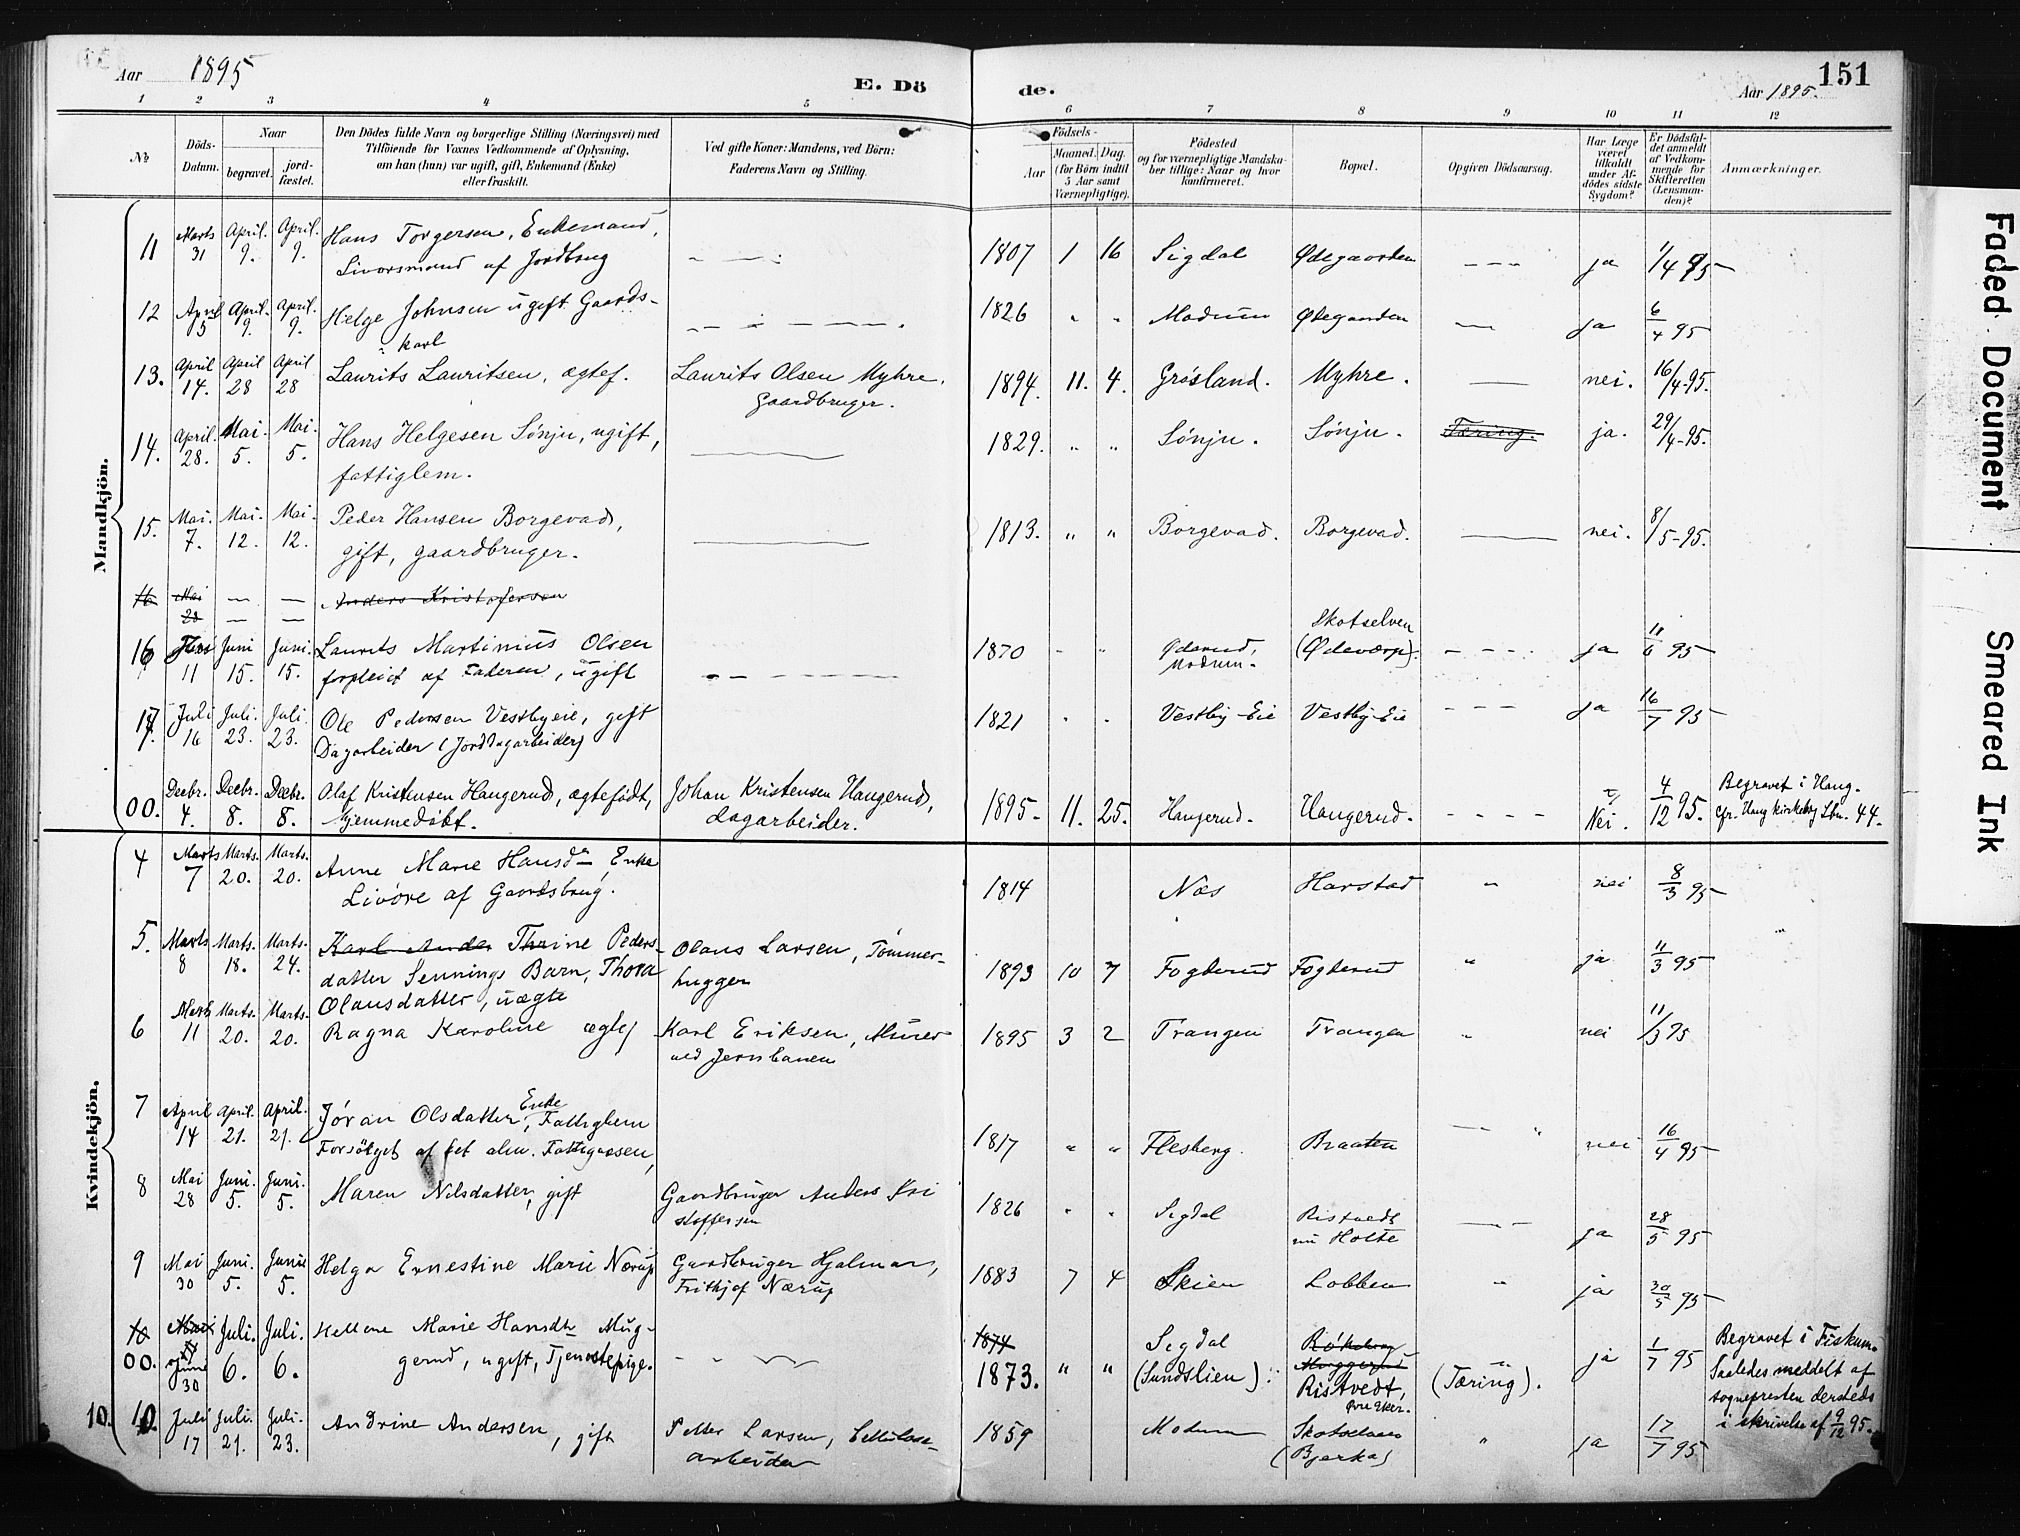 Aar 1895
E. Dö
de.
Aar 1895.
151
1 2 3 4 5
6 7 8 9 10 11 12
No
Döds-Datum.
Naar
begravet.
jord-fæstet.
Den Dödes fulde Navn og borgerlige Stilling (Næringsvei) med
Tilföiende for Voxnes Vedkommende af Oplysning,
om han (hun) var ugift, gift, Enkemand (Enke)
eller fraskilt.
Ved gifte Koner: Mandens, ved Börn:
Faderens Navn og Stilling.
Födsels-
Aar
Maaned.
Dag.
(for Börn indtil
5 Aar samt
Værnepligtige).
Födested
og for værnepligtige Mandska-
ber tillige: Naar og hvor
konfirmeret.
Bopæl.
Opgiven Dödsaarsag.
Har Læge
været
tilkaldt
under Af-
dödes sidste
Sygdom?
Er Dödsfal-
det anmeldt
af Vedkom-
mende for
Skifteretten
(Lensman-
den)?
Anmærkninger.
Mandkjön.
11 Marts 31 April. 9. April. 9. Hans Torgersen, Enkemand, Livørsmand af Jordbrug 1807 1 16 Sigdal Ødegaarden ja 1/4 95
12 April 5 April. 9. April. 9. Helge Johnsen ugift Gaards-karl 1826 " " Modum Ødegaarden ja 6/4 95
13. April 14. April 28 April 28 Laurits Lauritsen, ægtef. Laurits Olsen Myhre, Gaardbruger. 1894. 11. 4. Grøsland. Myhre. nei. 16/4-95.
14. April. 28. Mai. 5. Mai. 5. Hans Helgesen Sønju, ugift, fattiglem. 1829. " " Sønju. Sønju. Tæring. ja. 29/4-95.
15. Mai. 7. Mai. 12. Mai. 12. Peder Hansen Borgevad, gift, gaardbruger. 1813. " " Borgevad. Borgevad. nei. 8/5-95.
16 Mai 20 Anders Kristofersen
16 Juni 11 Juni 15. Juni. 15. Laurits Martinius Olsen forpleiet af Faderen, ugift 1870 " " Øderud, Modum. Skotselven (Ødeværp). ja 11/6 95
17. Juli 16 Juli. 23. Juli. 23. Ole Pedersen Vestbyeie, gift Dagarbeider (Jorddagarbeider) 1821 " " Vestby-Eie Vestby-Eie ja 16/7 95
00. Decbr. 4. Decbr. 8. Decbr. 8. Olaf Kristensen Haugerud, ægtefødt, hjemmedøbt. Johan Kristensen Haugerud, Dagarbeider. 1895. 11. 25. Haugerud. Haugerud. Nei. 4/12 95. Begravet i Haug. cfr. Haug kirkebog Lbn. 44.
Kvindekjön.
4 Marts 7 Marts. 20. Marts. 20. Anne Marie Hansdr, Enke Livøre af Gaardsbrug. 1814 Næs Harstad " nei 8/3 95
5. Marts 8 Marts. 18. Marts. 24. Karl Ander Thrine Pedersdatter Sennings Barn, Thora Olausdatter, uægte Olaus Larsen, Tømmerhugger 1893 10 7 Fogterud Fogterud " ja 11/3 95
6 Marts 11 Marts. 20. Marts. 20. Ragna Karoline ægte Karl Eriksen, Murer ved Jernbanen 1895 3 2 Trangen Trangen " nei 11/3 95
7 April 14 April. 21. April. 21. Jøran Olsdatter, Enke Fattiglem Forsørget af det alm. Fattigvæsen, 1817 " " Flesberg. Braaten " nei 16/4 95
8 Mai 28 Juni. 5. Juni. 5. Maren Nilsdatter, gift Gaardbruger Anders Kristoffersen 1826 " " Sigdal Ristvedt nu Holte ja 28/5 95
9 Mai 30 Juni. 5. Juni 5. Helga Ernestine Marie Nærup Gaardbruger Hjalmar, Frithjof Nærup 1883 7 4 Skien Lobben " ja 30/5 95
10 00. Mai Juni 30 Juli. 6. Juli. 6. Hellene Marie Hansdr Muggerud, ugift, Tjenestepige. 1874 1873. " " Sigdal (Sundslien): Muggerud Ristvedt, Øvre Eker. (Tæring). ja 1/7 95 Begravet i Fiskum. Saaledes meddelt af sognepresten dersteds i skrivelse af 9/12 95.
10. 10. Juli 17 Juli. 21. Juli. 23. Andrine Andersen, gift Petter Larsen, Cellulosearbeider 1859 Modum Skotselven (Bjerka) " ja 17/7 95
Faded Document
Smeared Ink